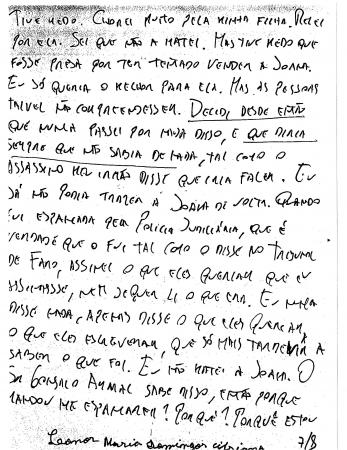 TIVE MEDO. CHOREI MUITO PELA MINHA FILHA. REZEI
POR ELA. SEI QUE NÃO A MATEI. MAS TIVE MEDO QUE
FOSSE PRESA POR TER TENTADO VENDER A JOANA.
EU SÓ QUERIA O MELHOR PARA ELA. MAS AS PESSOAS
TALVEZ NÃO COMPREENDESSEM. DECIDI, DESDE ENTÃO
QUE NUNCA PASSEI POR NADA DISSO, E QUE DIRIA
SEMPRE QUE NÃO SABIA DE NADA, TAL COMO O
ASSASSINO MEU IRMÃO DISSE QUE IRIA FALAR. EU
JÁ NÃO PODIA TRAZER A JOANA DE VOLTA. QUANDO
FUI ESPANCADA PELA POLÍCIA JUDICIÁRIA, QUE É
VERDADE QUE O FUI TAL COMO O DISSE NO TRIBUNAL
DE FARO, ASSINEI O QUE ELES QUERIAM QUE EU
ASSINASSE, NEM SEQUER LI O QUE ERA. EU NUNCA
DISSE NADA, APENAS DISSE O QUE ELES QUERIAM,
O QUE ELES ESCREVERAM, QUE SÓ MAIS TARDE VIM A
SABER O QUE FOI. EU NÃO MATEI A JOANA. O
SR GONÇALO AMARAL SABE DISSO, ENTÃO PORQUE
MANDOU ME ESPANCAREM? PORQUÊ? PORQUÊ ESTOU
Leonor Maria Domingos Cipriano 7/8